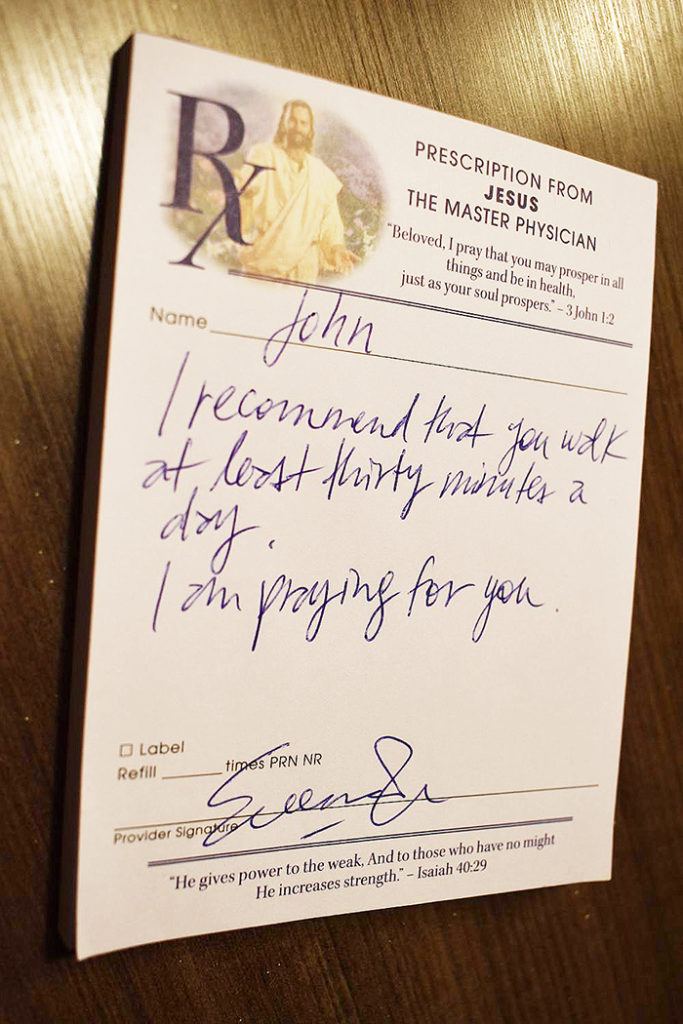 Rx
PRESCRIPTION FROM
JESUS
THE MASTER PHYSICIAN
"Beloved, I pray that you may prosper in all
things and be in health,
just as your soul prospers." – 3 John 1:2
Name John
I recommend that you walk
at least thirty minutes a
day.
I am praying for you.
☐ Label
Refill ______ times PRN NR
Provider Signature
"He gives power to the weak, And to those who have no might
He increases strength." – Isaiah 40:29